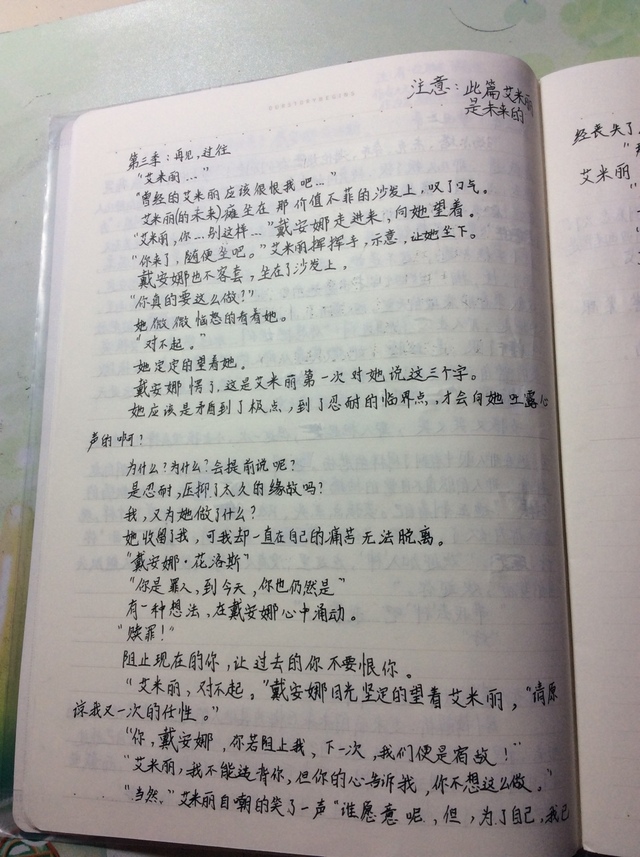 注意：此篇艾米丽
是未来的
第三季：再见，过往
"艾米丽…"
"曾经的艾米丽应该很恨我吧…"
艾米丽(的未来)瘫坐在那价值不菲的沙发上，叹了口气。
"艾米丽，你…别这样…"戴安娜走进来，向她望着。
"你来了，随便坐吧。"艾米丽挥挥手，示意，让她坐下。
戴安娜也不客套，坐在了沙发上，
"你真的要这么做？"
她微微恼怒的看着她。
"对不起。"
她定定的望着她。
戴安娜愣了，这是艾米丽第一次对她说这三个字。
她应该是矛盾到了极点，到了忍耐的临界点，才会向她吐露心
声的啊！
为什么？为什么？会提前说呢？
是忍耐，压抑了太久的缘故吗？
我，又为她做了什么？
她收留了我，可我却一直在自己的痛苦无法脱离。
"戴安娜·花洛斯"
"你是罪人，到今天，你也仍然是"
有一种想法，在戴安娜心中涌动。
"赎罪！"
阻止现在的你，让过去的你不要恨你。
"艾米丽，对不起。"戴安娜目光坚定的望着艾米丽，"请原
谅我又一次的任性。"
"你，戴安娜，你若阻止我，下一次，我们便是宿敌！"
"艾米丽，我不能违背你，但你的心告诉我，你不想这么做。"
"当然，"艾米丽自嘲的笑了一声"谁愿意呢，但，为了自己，我已
经长关了
艾米丽，